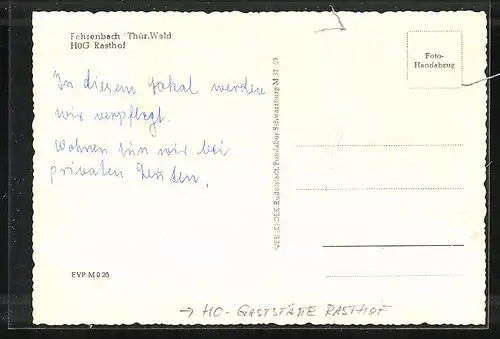 Fehrenbach Thür.Wald
HOG Rasthof
Foto-
Handabzug
In diesem Lokal werden
wir verpflegt.
Wohnen tun wir bei
privaten Leuten.
VEB (K) OLK Rudolstadt, Fotolabor Schwarzburg M
EVP M 0 25
→ HO-GASTSTÄTTE RASTHOF